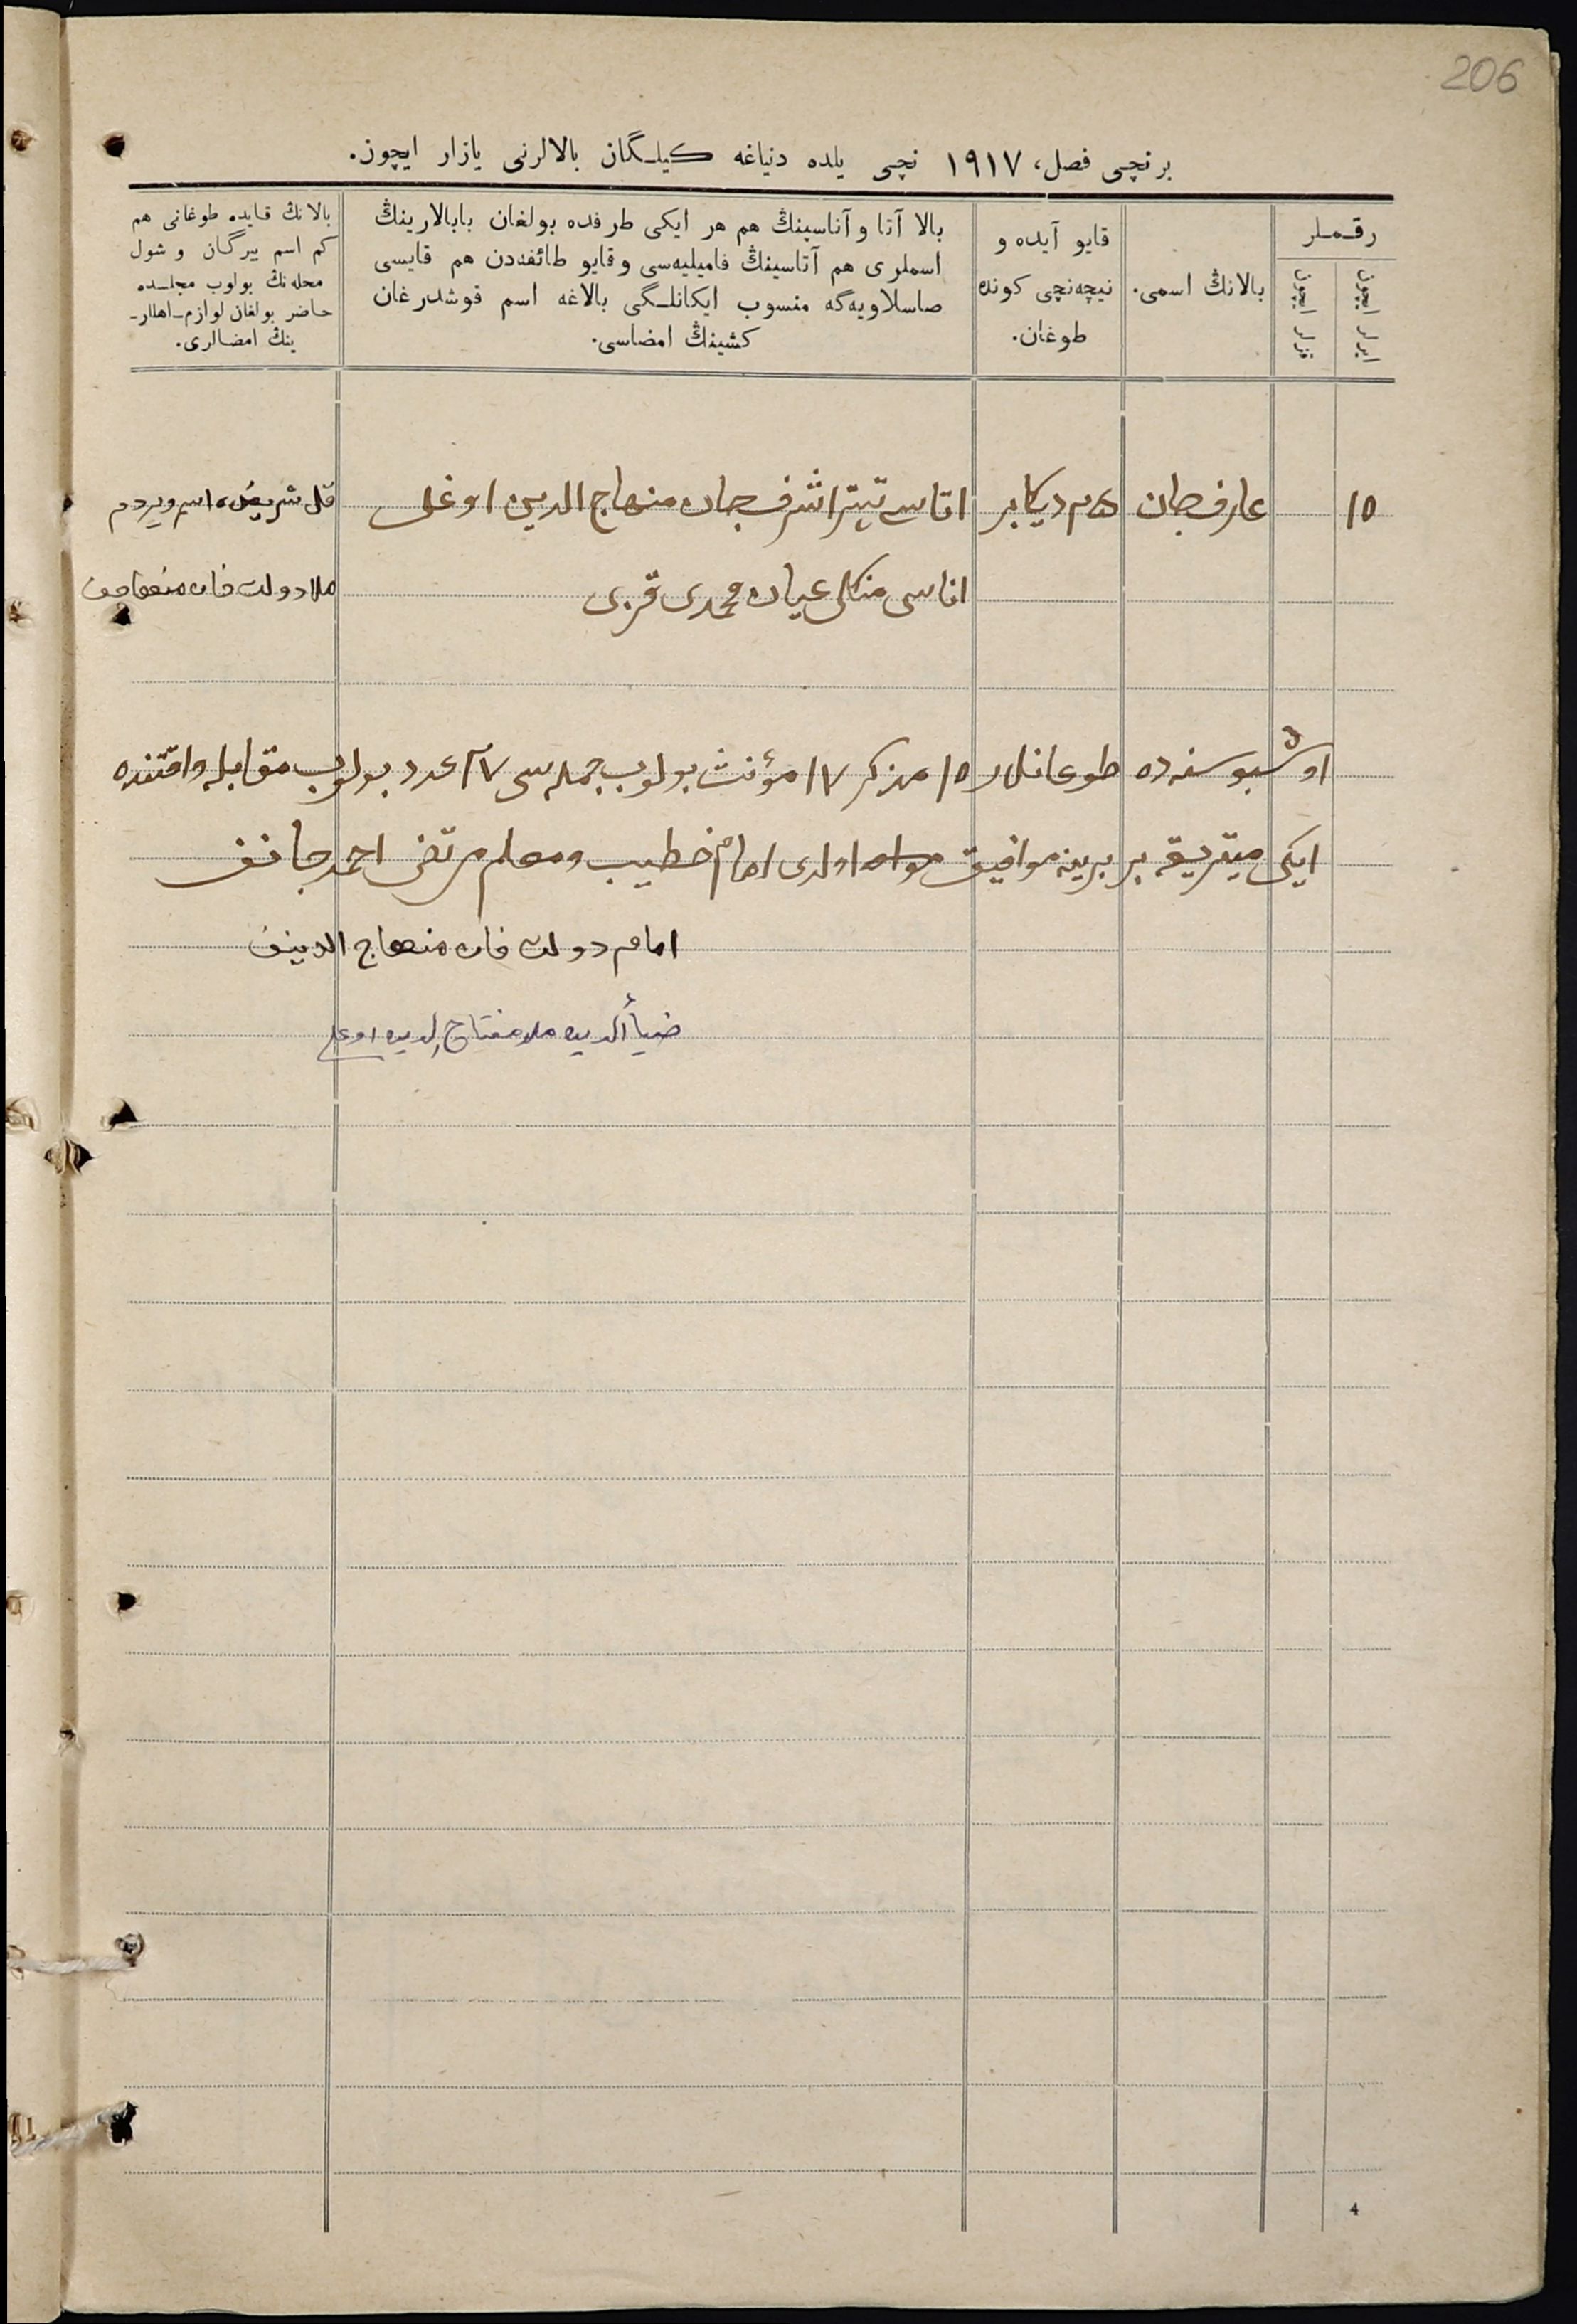 206
برنچی فصل، ۱۹۱۷ نچی یلده دنیاغه کیلگان بالالرنی یازار ایچون.
رقملر
ایرلر ایچون
قزلر ایچون
بالانڭ اسمی.
قایو آیده و
نیچه‌نچی کونده
طوغان.
بالا آتا و آناسینڭ هم هر ایکی طرفده بولغان بابالارینڭ
اسملری هم آتاسینڭ فامیلیه‌سی و قایو طائفه‌دن هم قایسی
صاسلاویه‌گه منسوب ایکانلگی بالاغه اسم قوشدرغان
کشینڭ امضاسی.
بالانڭ قایده طوغانی هم
کم اسم بیرگان و شول
محله‌نڭ بولوب مجلسده
حاضر بولغان لوازم-اهللر-
ینڭ امضالری.
۱۵
عارفجان
دیکابر
اتاسی اشرفجان منهاج الدین اوغلی
اسم ویردم
اناسی محمدی قزی
ملا دولت خان
اوشبو سنه‌ده طوغانلر ۱۵ مذکر ۱۷ مؤنث بولوب جمله‌سی عدد بولوب مقابله واقتنده
ایکی میتریقه بر برینه موافیق اولدی امام خطیب ومعلم مرتضی احمدجانف
امام دولت خان منهاج الدینف
ضیاالدین ملا مفتاح الدین اوغلی
4